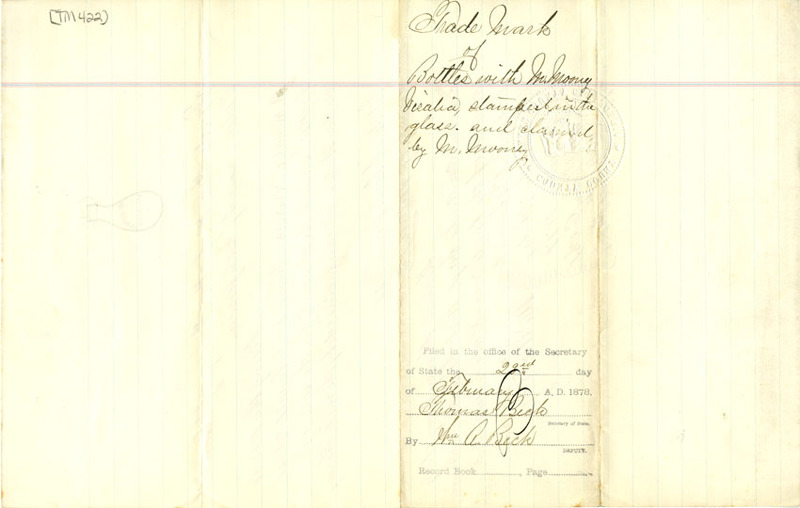 [TM 422]
Trade Mark
of
Bottles with M. Mooney
Visalia, stamped in the
glass. and claimed
by M. Mooney
COUNTY COURT
Filed in the office of the Secretary
of State the 22nd day
of February A. D. 1878.
Thomas Beck
Secretary of State.
By Wm A. Beck
DEPUTY.
Record Book , Page